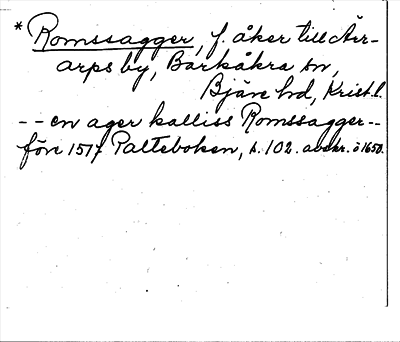 * Romssagger, f. åker till Äir-
arps by, Barkåkra sn,
Bjäre hd, Krist.l.
-- en ager kalliss Romssagger --
före 1517 Palteboken, s. 102. avskr. ö 1650.